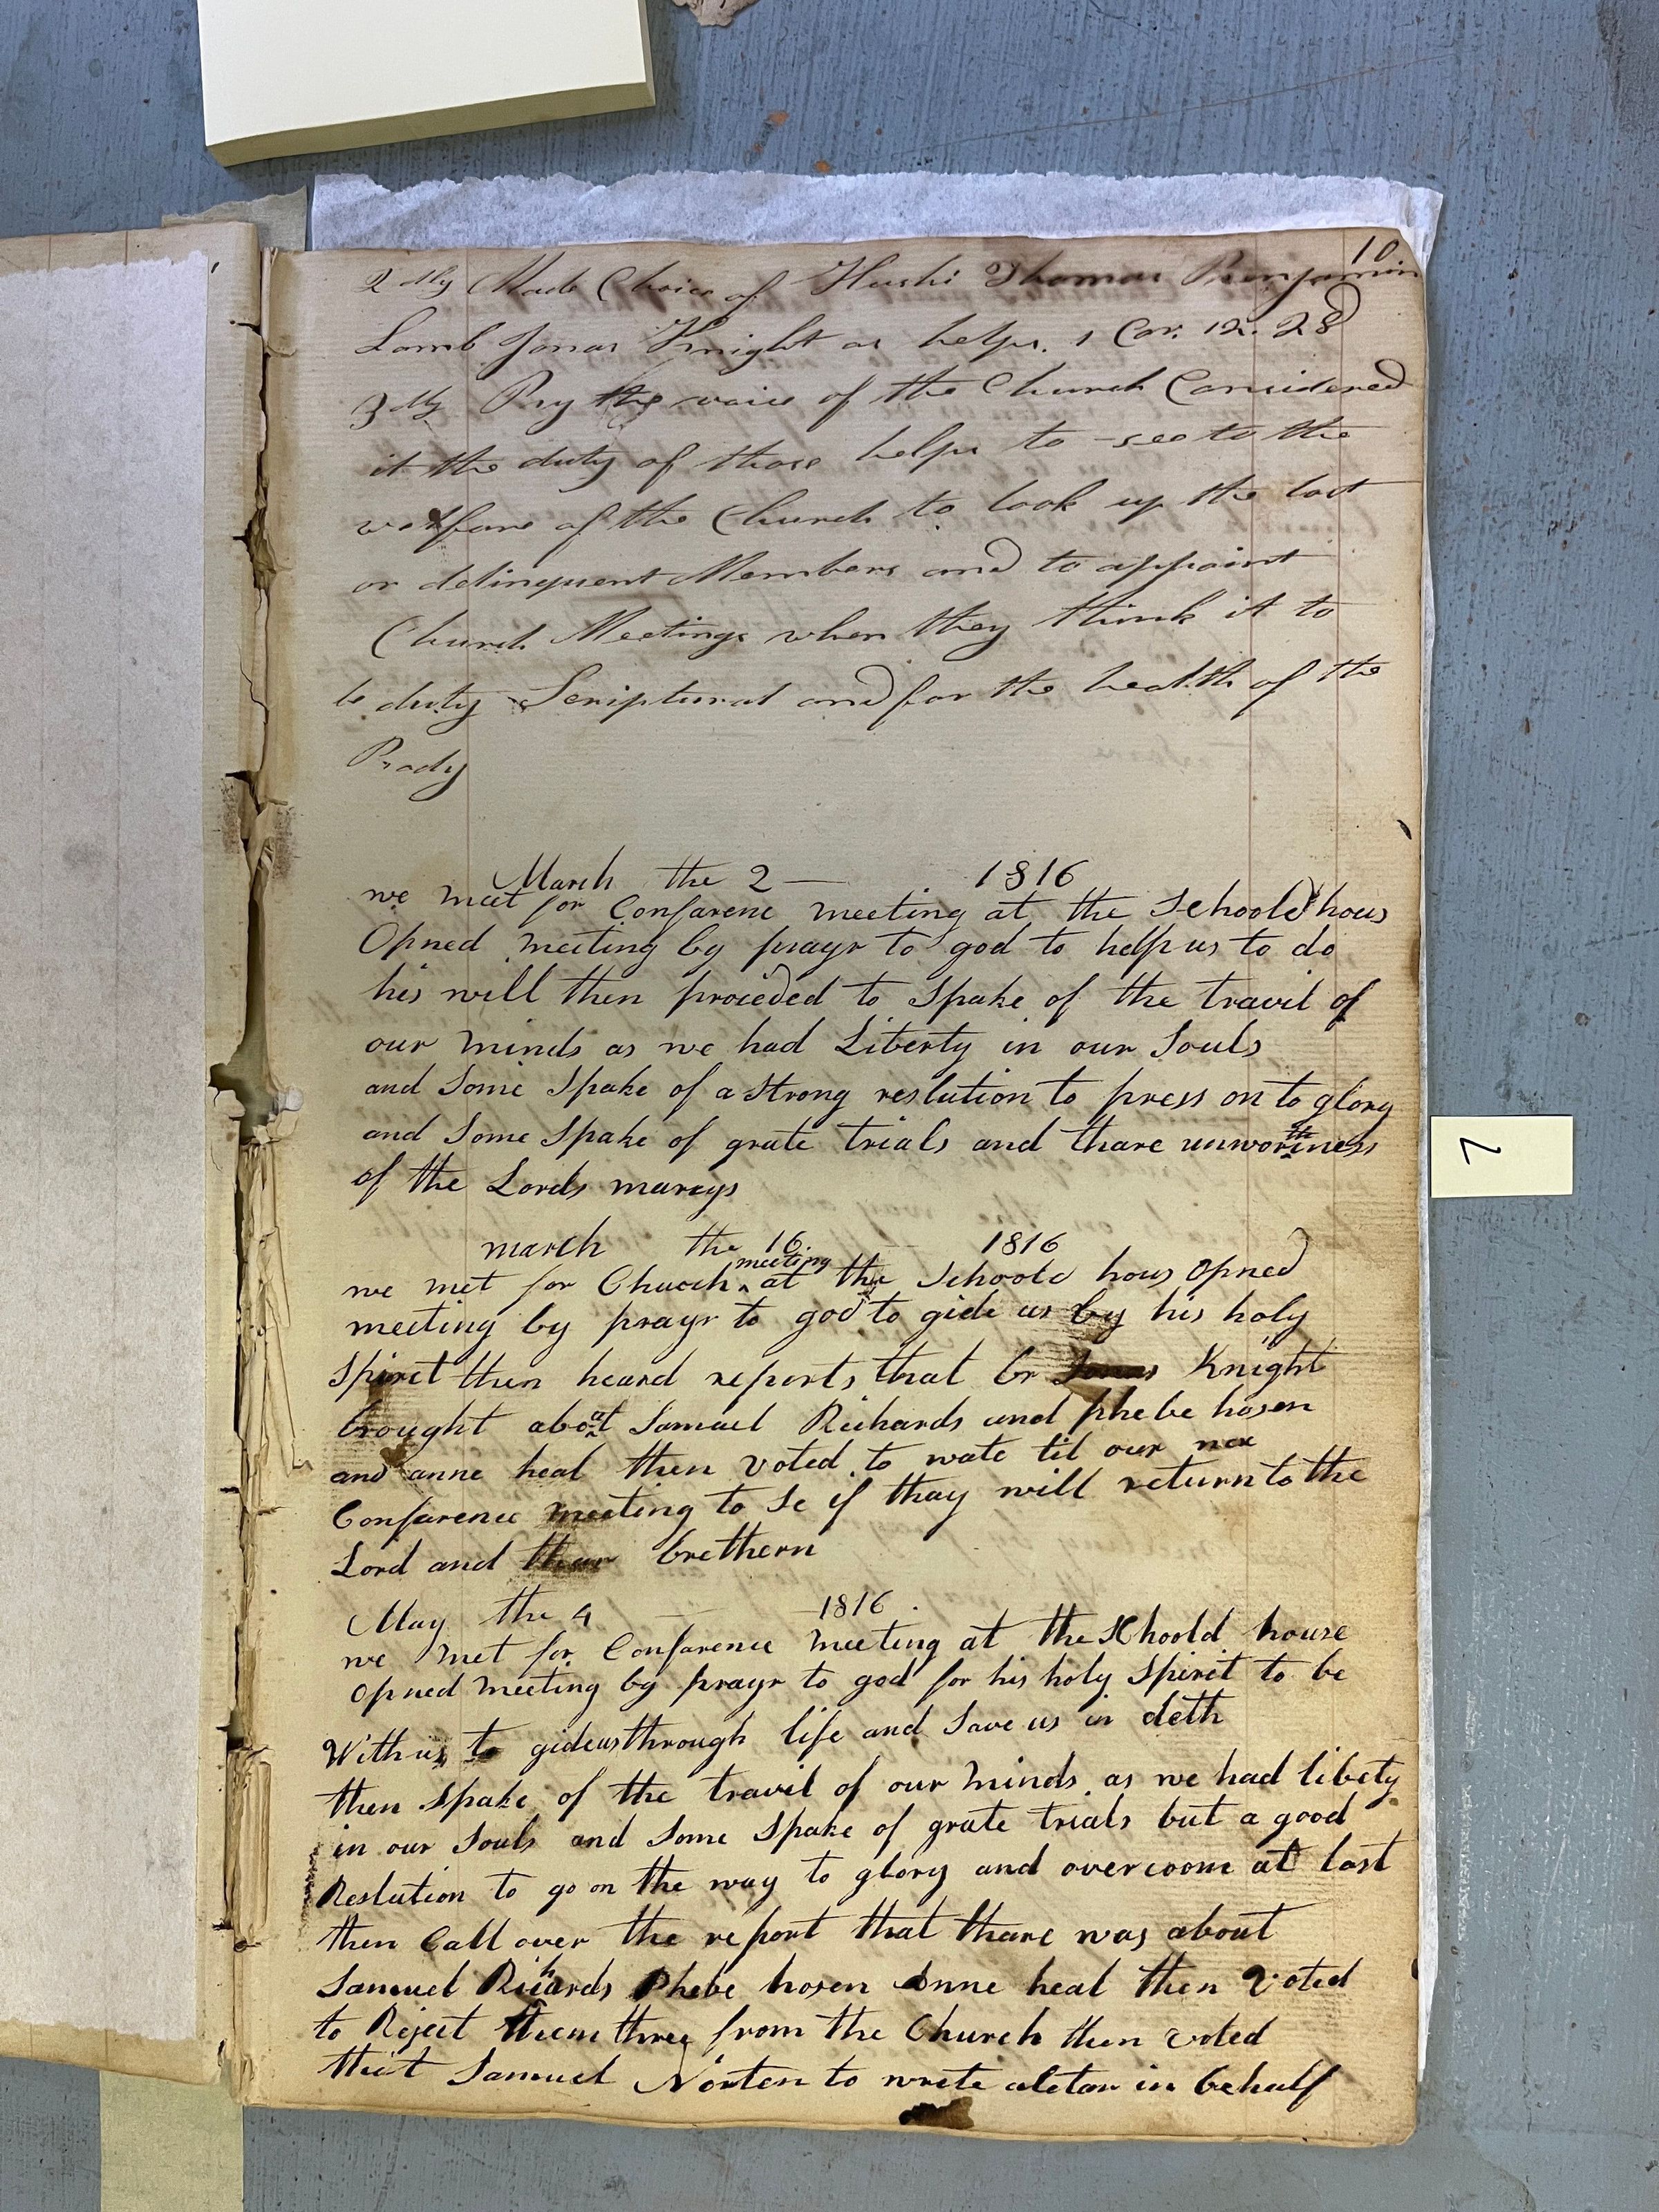 10
2 dly Made Choice of Hushi Thomas Benjamin
Lamb Jonas Knight as helps. 1 Cor. 12. 28
3 dly By the voice of the Church Considered
it the duty of those helps to see to the
welfare of the Church to look up the lost
or delinquent Members and to appoint
Church Meetings when they think it to
be duty Scriptural and for the health of the
Body
March the 2 — 1816
we meet for Confarenc meeting at the Schoold hous
Opned meeting by prayr to god to help us to do
his will then proceded to Spake of the travil of
our minds as we had Liberty in our Souls
and Some Spake of a Strong reslution to press on to glory
and Some Spake of grate trials and thare unworthiness
of the Lords marcys
march the 16 1816
we met for Church meeting at the Schoold hous Opned
meeting by prayr to god to gide us by his holy
Spiret then heard reports that br Jonas Knight
brought about Samuel Richards and phebe hosen
and anne heal then voted to wate til our nex
Confarence meeting to Se if thay will return to the
Lord and thear brethern
May the 4 1816
we met for Confarence meeting at the Schoold house
Opned meeting by prayr to god for his holy Spiret to be
With us to gide us through life and Save us in deth
then Spake of the travil of our minds as we had libety
in our Souls and Some Spake of grate trials but a good
Reslution to go on the way to glory and overcoome at last
then Call over the report that thare was about
Samuel Richards Phebe hosen Anne heal then Voted
to Reject them three from the Church then voted
that Samuel Norten to wrete aletar in behalf
7